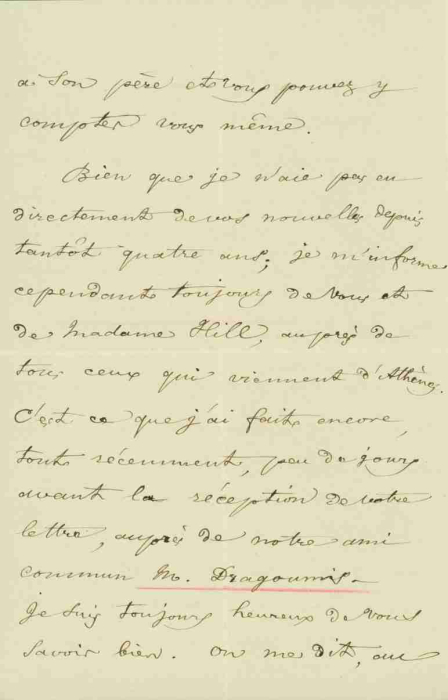 à son père et vous pouvez y
compter vous même.
Bien que je n'aie pas eu
directement de vos nouvelles depuis
tantôt quatre ans, je m'informe
cependant toujours de vous et
de Madame Hill, auprès de
tous ceux qui viennent d'Athènes.
C'est ce que j'ai fait encore,
tout récemment, peu de jours
avant la réception de votre
lettre, auprès de notre ami
commun M. Dragoumis -
Je suis toujours heureux de vous
savoir bien. On me dit, au